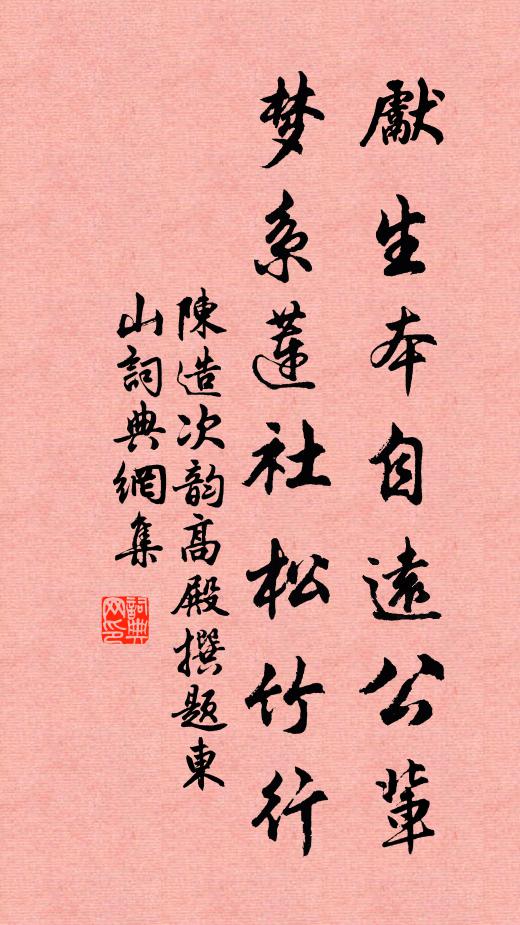 獻生本自遠公輩
梦系蓮社松竹行
陳造次韵高殿撰题東
山詞典網集
詞典
网印